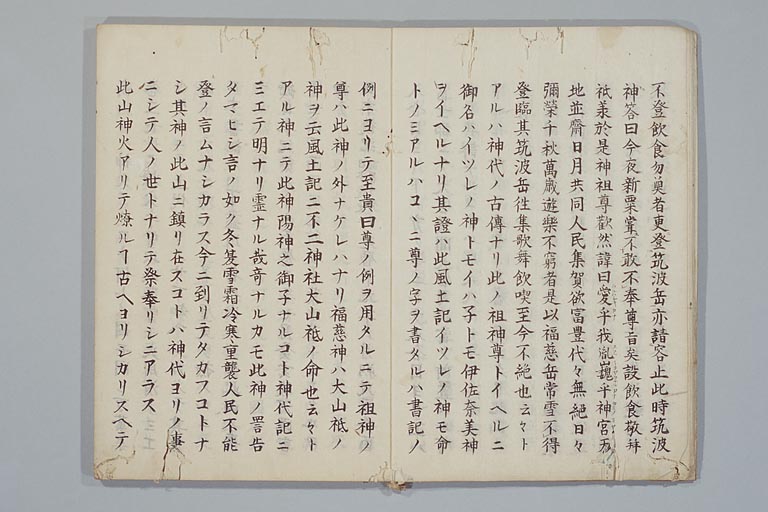 不登飲食勿奠者更登筑波岳亦請容止此時筑波
神答曰今夜新粟甞不敢不奉尊旨矣設飲食敬拜
祇羕於是神祖尊歡然諱曰愛乎我胤巍乎神宮天
地並齋日月共同人民集賀飲富豊代々無絕日々
彌榮千秋萬歲遊樂不窮者是以福慈岳常雪不得
登臨其筑波岳徃集歌舞飲喫至今不絕也云々ト
アルハ神代ノ古傳ナリ此ノ祖神尊トイヘルニ
御名ハイツレノ神トモイハ子トモ伊佐奈美神
ヲイヘルナリ其證ハ此風土記イツレノ神モ命
トノミアルハコヽニ尊ノ字ヲ書タルハ書記ノ
例ニヨリテ至貴曰尊ノ例ヲ用タルニテ祖神ノ
尊ハ此神ノ外ナケレハナリ福慈神ハ大山祇ノ
神ヲ云風土記ニ不二神社大山祗ノ命也云々ト
アル神ニテ此神陽神之御子ナルコト神代記ニ
ミエテ明ナリ霊ナル哉竒ナルカモ此神ノ詈告
タマヒシ言ノ如ク冬夏雪霜冷寒重襲人民不能
登ノ言ムナシカラス今ニ到リテタカフコトナ
シ其神ノ此山ニ鎮リ在スコトハ神代ヨリノ事
ニシテ人ノ世トナリテ祭奉リシニアラス
此山神火アリテ燎ルヿ古ヘヨリシカリスヘテ